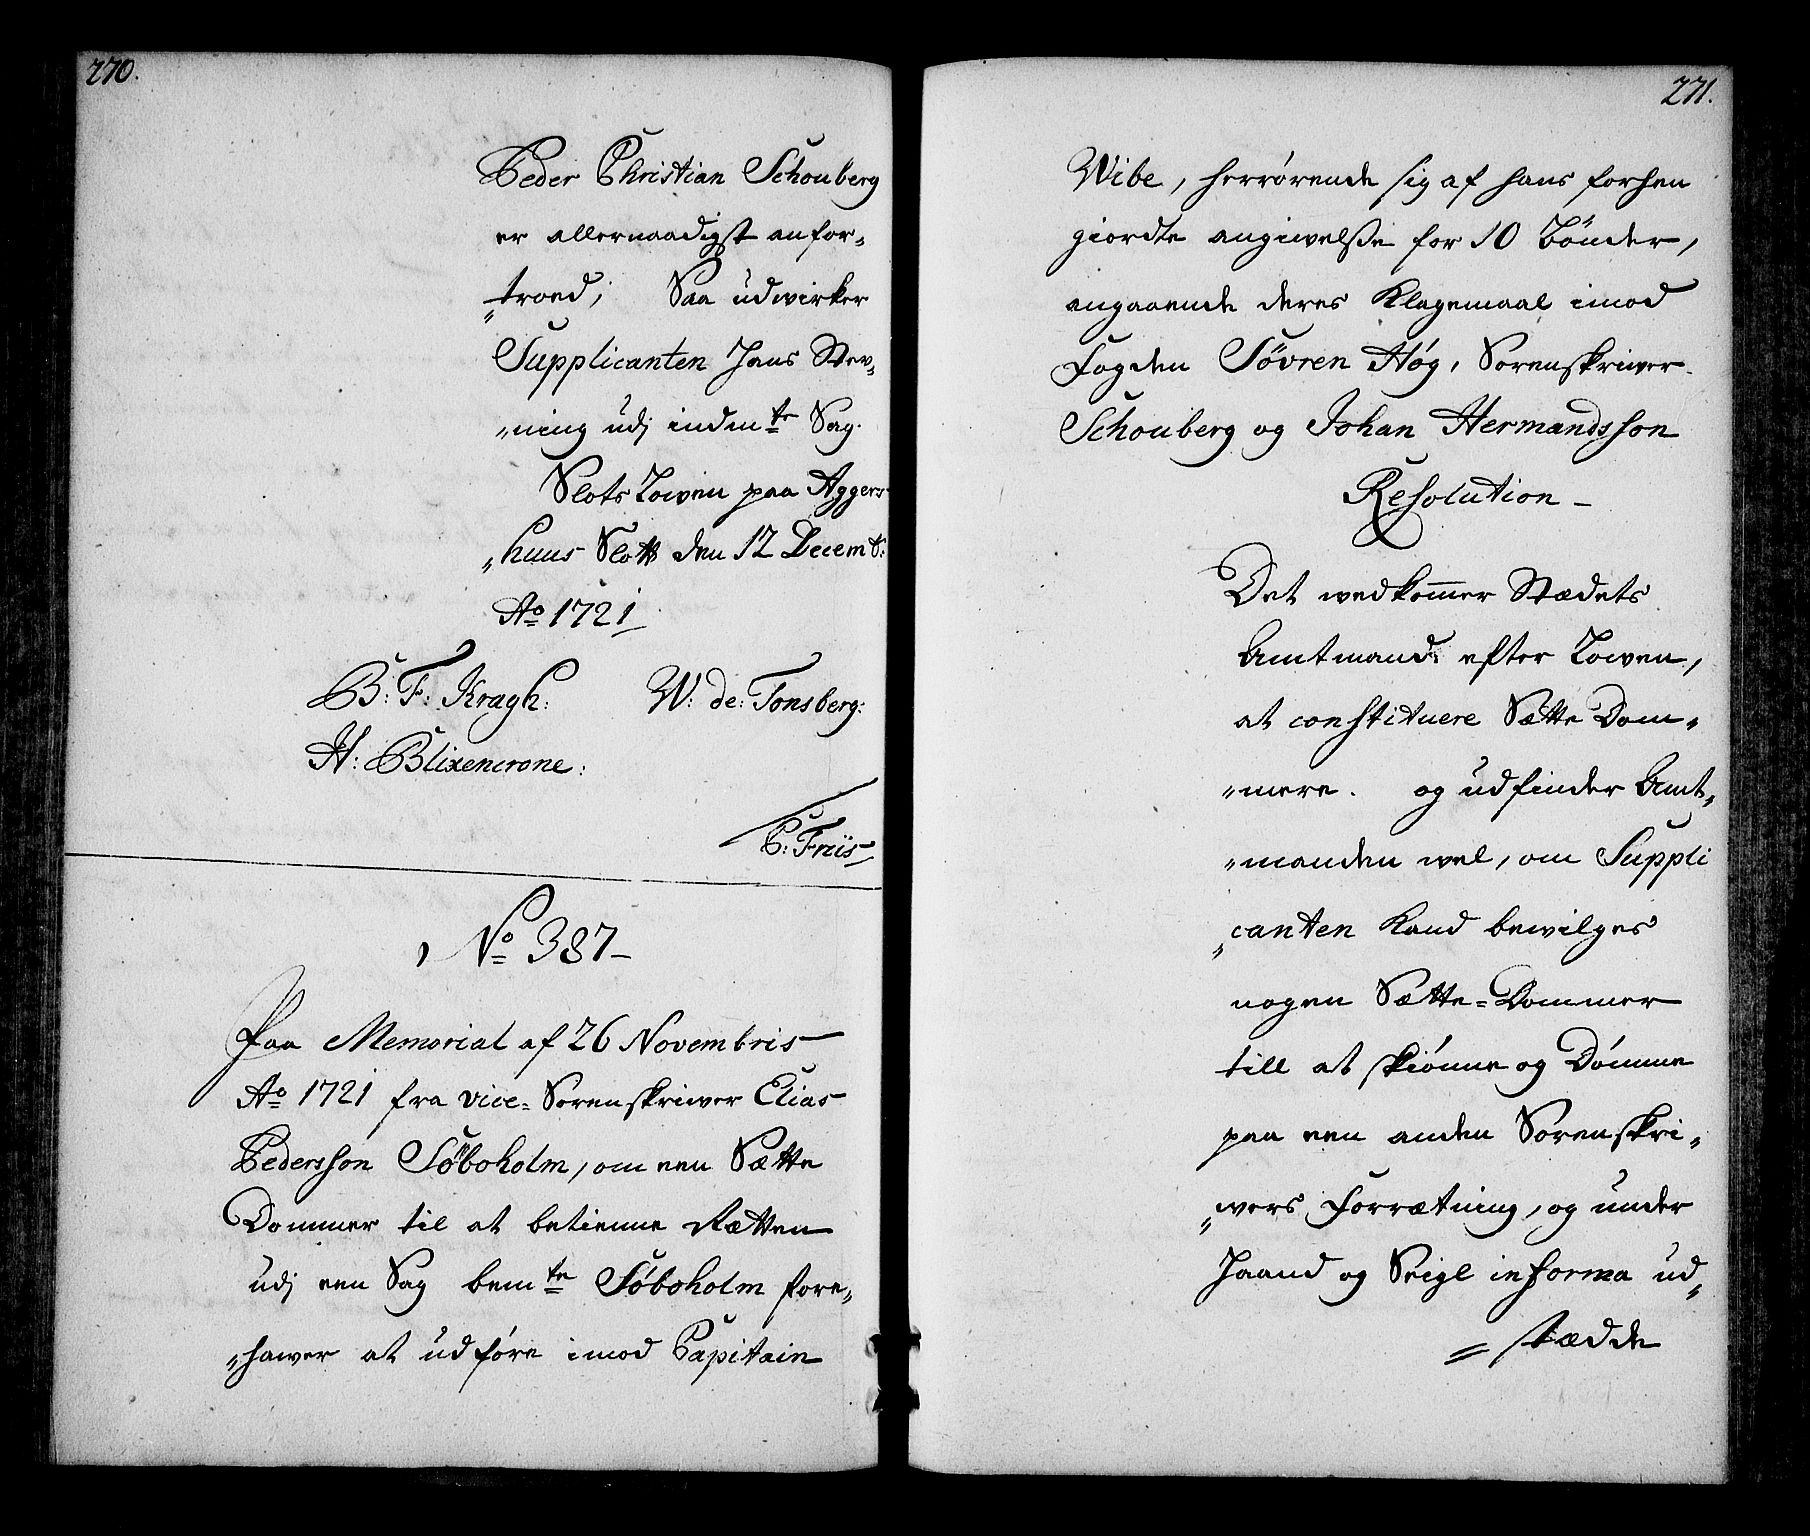 270.
Peder Christian Schouberg
er allernaadigst anfor„
„troed; Saa udwirker
Supplicanten Hans Stev„
„ning udj indm<sup>te</sup> Sag.
Slots Lowen paa Aggers„
„huus Slott den 12 Decemb:
A<sup>o</sup> 1721
B: F: Kragh: W: de: Tonsberg:
H: Blixencrone:
C: Friis
N<sup>o</sup> 387
Paa Memorial af 26 Novembris
A<sup>o</sup> 1721 fra vice-Sorenskriwer Elias
Pedersson Söboholm, om een Sætte
Dommer til at betienne Rætten
udj een Sag bem<sup>te</sup> Söboholm fore„
„hawer at udføre imod Capitain
271.
Wibe, herrørende sig af hans forhen
giordte angiwelsse for 10 Bönder,
angaaende deres Klagemaal imod
Fogden Sövren Høg, Sorenskriwer
Schouberg og Johan Hermandsson
Resolution
Det wedkom̄er Stædets
Amtmand efter Lowen,
at constituere Sætte Dom„
„mere. og udfinder Amt„
„manden wel, om Suppli
„canten Kand bewilges
nogen Sætte-Dommer
till at skiønne og Dömme
paa een anden Sorenskri„
„wers Forrætning, og under
Haand og Seigl in forma ud„
„stædde